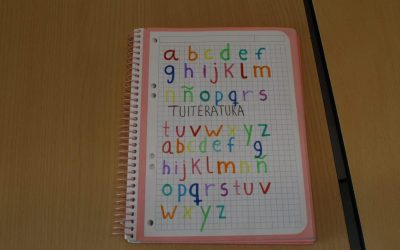 a b c d e f
g h i j k l m
n ñ o p q r s
TUITERATURA
t u v w x y z
a b c d e f g
h i j k l m n ñ
o p q r s t u v
w x y z